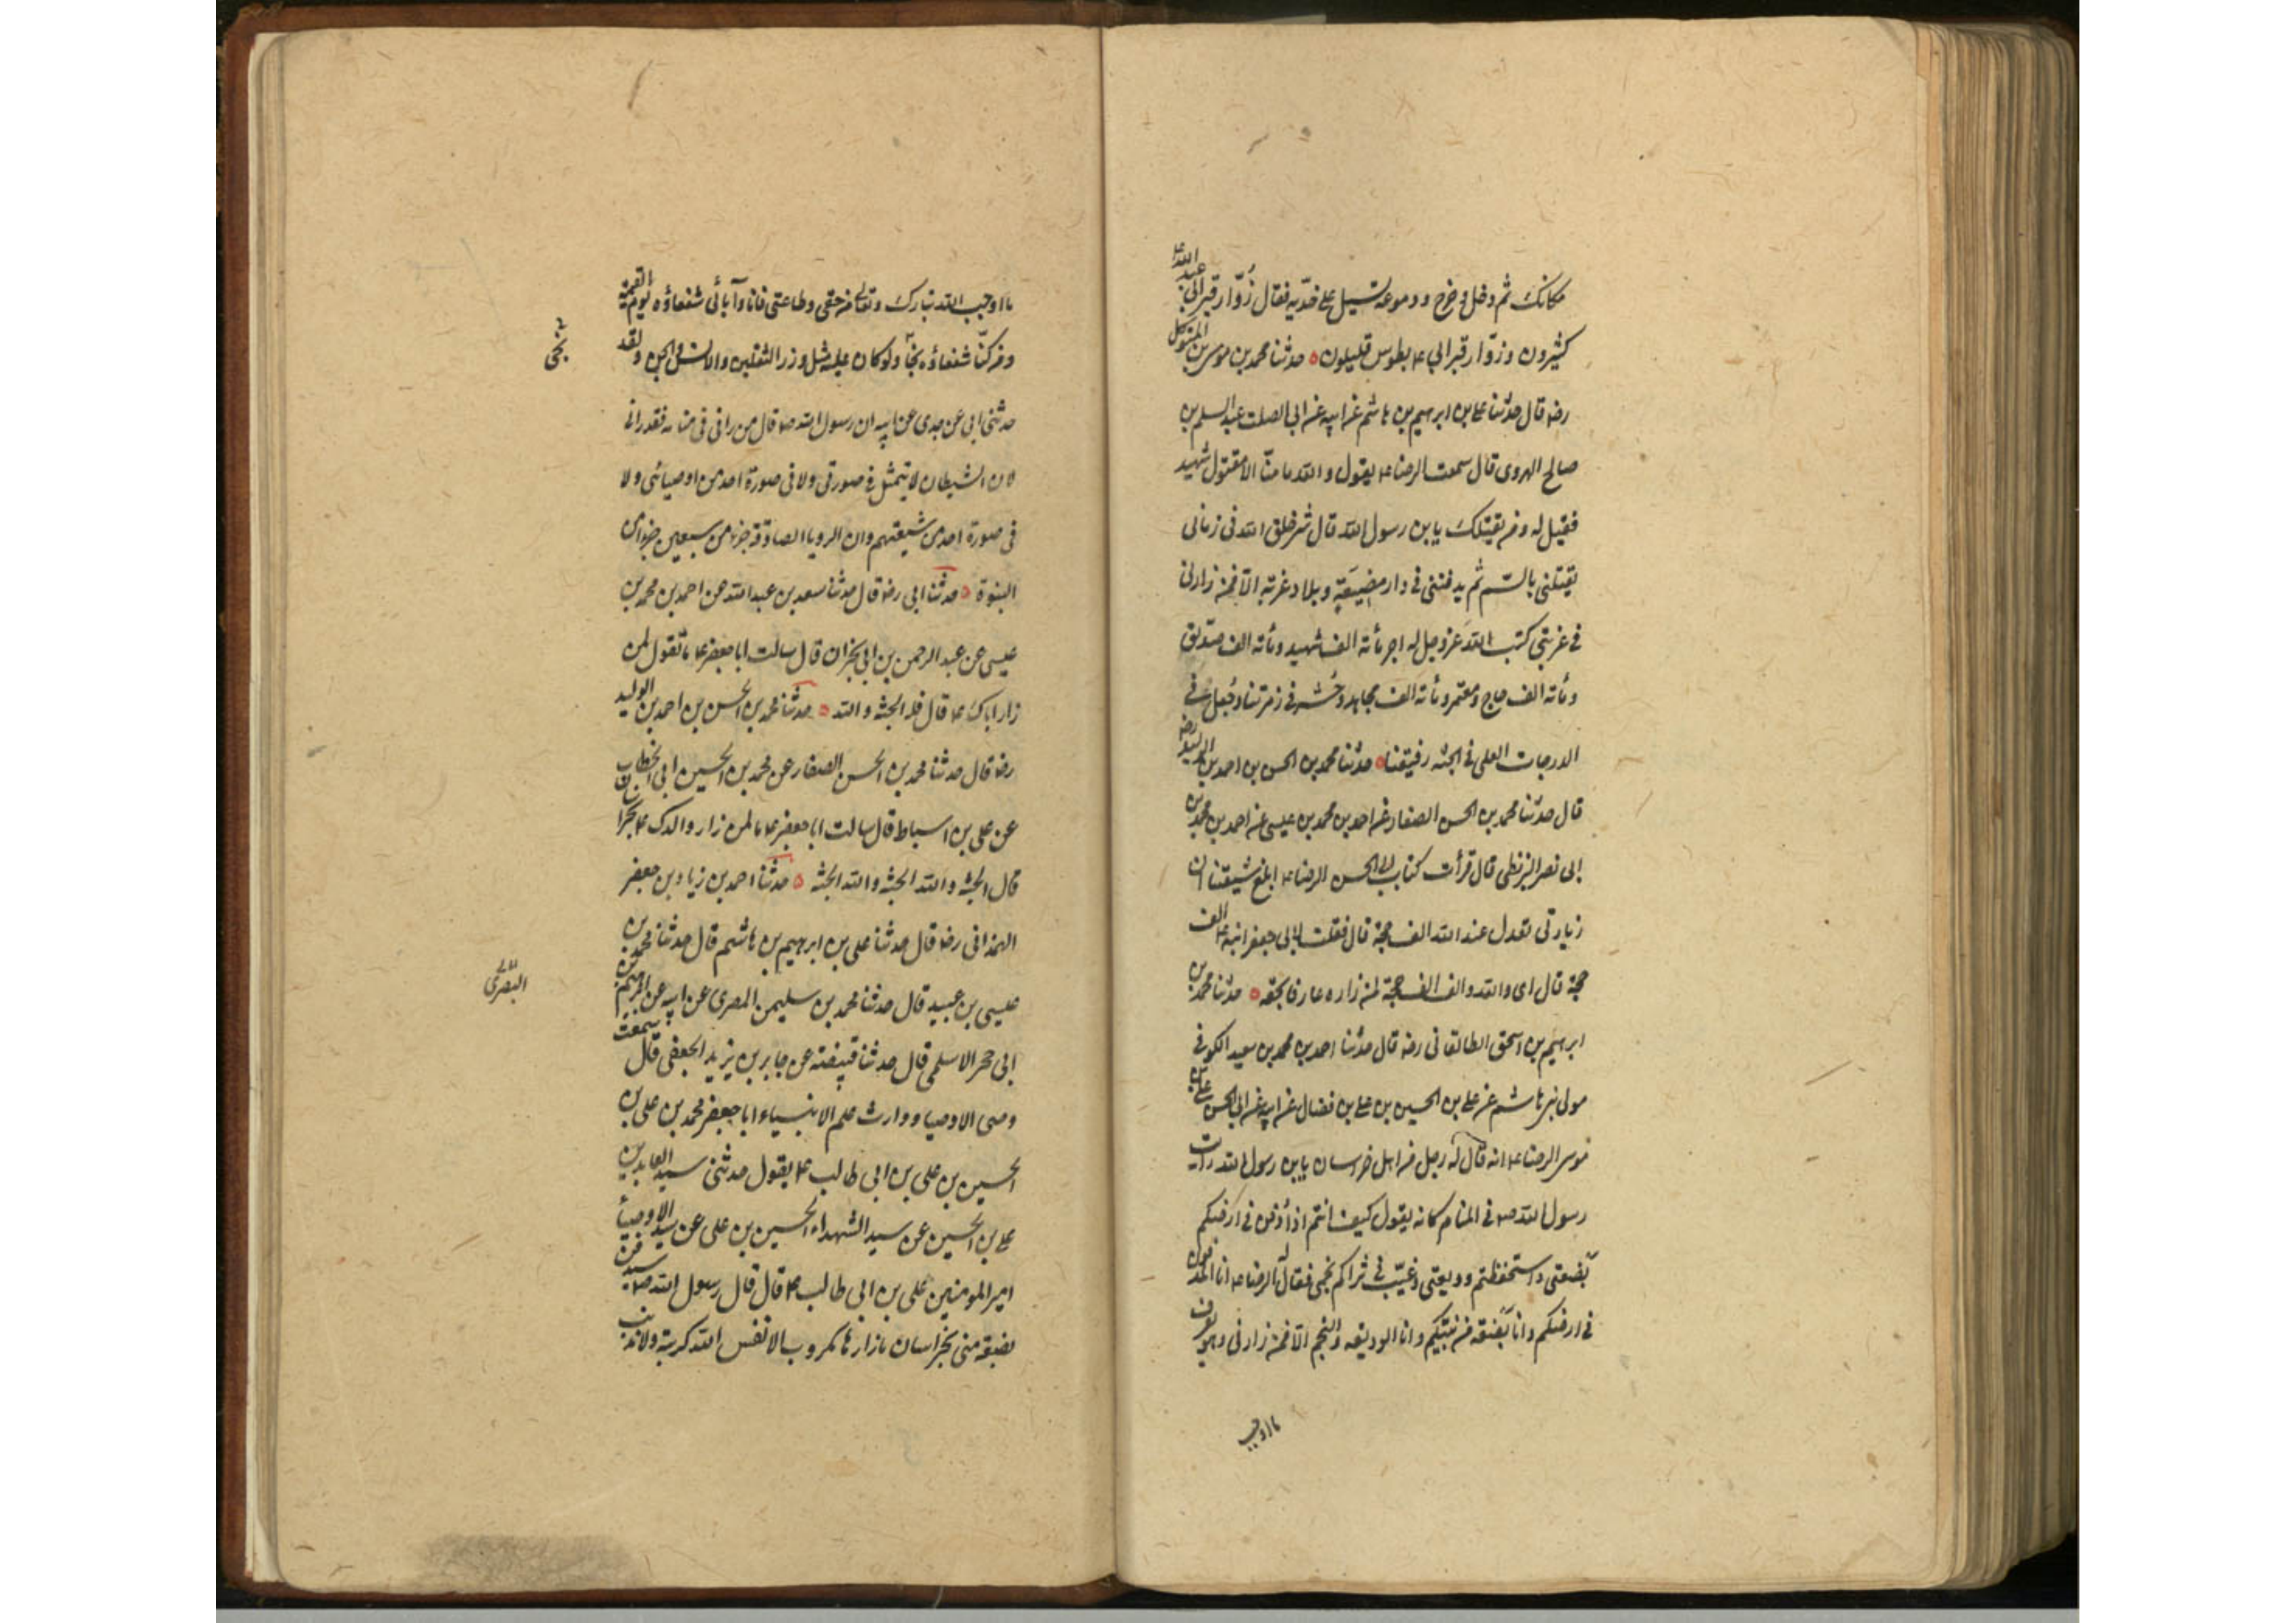 مكانك ثم دخل وخرج ودموعه تسيل على خديه فقال زُوّار قبر ابي عبد الله ع
كثيرون وزوّار قبر ابي ع بطوس قليلون ه حدثنا محمد بن موسى بن المتوكل
رضه قال حدثنا على بن ابرهيم بن هاشم عن ابيه عن ابي الصلت عبد السلم بن
صالح الهروى قال سمعت الرضا ع يقول والله ما منّا الا مقتول شهيد
فقيل له ومن يقتلك يابن رسول الله قال شر خلق الله فى زمانى
يقتلنى بالسّم ثم يدفننى فى دار مضيعَة وبلاد غربة الا فمن زارنى
فى غربتى كتب الله عز وجل له اجر مائة الف شهيد ومائة الف صدّيق
ومائة الف حاج ومعتمر ومائة الف مجاهد وحُشر فى زمرتنا وجُعل فى
الدرجات العلى فى الجنة رفيقنا ه حدثنا محمد بن الحسن بن احمد بن الوليد رضه
قال حدثنا محمد بن الحسن الصفار عن احمد بن محمد بن عيسى عن احمد بن محمد بن
ابى نصر البزنطى قال قرأت كتاب ابى الحسن الرضا ع ابلغ شيعتنا ان
زيارتى تعدل عند الله الف حجة قال فقلت لابى جعفر ابنه ع الف
حجة قال اى والله والف الف حجة لمن زاره عارفا بحقه ه حدثنا محمد بن
ابرهيم بن اسحق الطالقانى رضه قال حدثنا احمد بن محمد بن سعيد الكوفى
مولى بنى هاشم عن على بن الحسين بن على بن فضال عن ابيه عن ابى الحسن على بن
موسى الرضا ع انه قال له رجل من اهل خراسان يابن رسول الله رايت
رسول الله صه فى المنام كانه يقول كيف انتم اذا دُفن فى ارضكم
بَضعتى واستحفظتم وديعتى وغُيّب فى ثراكم نجمى فقال له الرضا ع انا المدفون
فى ارضكم وانا بَضعة من نبيّكم وانا الوديعه والنجم الا فمن زارنى وهو يعرف
ما اوجب
ما اوجب الله تبارك وتعالى من حقى وطاعتى فانا وآبائى شفعاؤه يوم القيمة
ومن كنّا شفعاؤه نجا ولو كان عليه مثل وزر الثقلين والانس والجن ولقد
نجى
حدثنى ابى عن جدى عن ابيه ان رسول الله صه قال من رانى فى منامه فقد رانى
لان الشيطان لا يتمثل فى صورتى ولا فى صورة احد من اوصيائى ولا
فى صورة احد من شيعتهم وان الرويا الصادقة جزء من سبعين جزوا من
النبوة ه حدثنا ابى رضه قال حدثنا سعد بن عبد الله عن احمد بن محمد بن
عيسى عن عبد الرحمن بن ابى نجران قال سالت ابا جعفر ع ما تقول لمن
زار اباك ع قال فله الجنة والله ه حدثنا محمد بن الحسن بن احمد بن الوليد
رضه قال حدثنا محمد بن الحسن الصفار عن محمد بن الحسين ابى الخطاب
عن على بن اسباط قال سالت ابا جعفر ع ما لمن زار والدك ع بخراسان
قال الجنة والله الجنة والله الجنة ه حدثنا احمد بن زياد بن جعفر
الهمذانى رضه قال حدثنا على بن ابرهيم بن هاشم قال حدثنا محمد بن
عيسى بن عبيد قال حدثنا محمد بن سليمن المصرى عن ابيه عن ابرهيم بن
البصرى
ابى حجر الاسلمى قال حدثنا قبيضته عن جابر بن يزيد الجعفى قال سمعت
وصى الاوصيا ووارث علم الانبياء ابا جعفر محمد بن على بن
الحسين بن على بن ابى طالب ع يقول حدثنى سيد العابدين
على بن الحسين عن سيد الشهداء الحسين بن على عن سيد الاوصياء
امير المومنين على بن ابى طالب ع قال قال رسول الله صه ستدفن
بضعة منى بخراسان ما زارها مكروب الا نفس الله كربته ولا مذنب